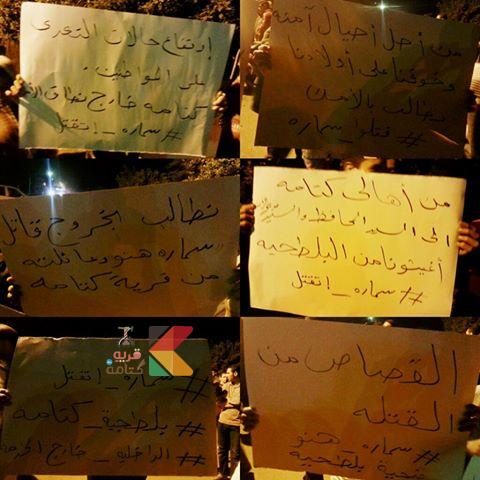 إرتفاع حالات التعدى
على المواطنين .
كتامه خارج نطاق
#سماره_إتقتل
من أجل أجيال آمنه
وخوفنا على أولادنا
نطالب بالأمن
#قتلوا_سماره
نطالب بخروج قاتل
سماره هنو وعائلته
من قرية كتامه
من أهالى كتامه
الى السيد المحافظ والسيد
أغيثونا من البلطجيه
#سماره_إتقتل
قرية
كتامة
#سماره_إتقتل
#بلطجية_كتامه
#الداخليه_خارج_الخدمة
القصاص من
القتله
#سماره_هنو
ضحية بلطجيه